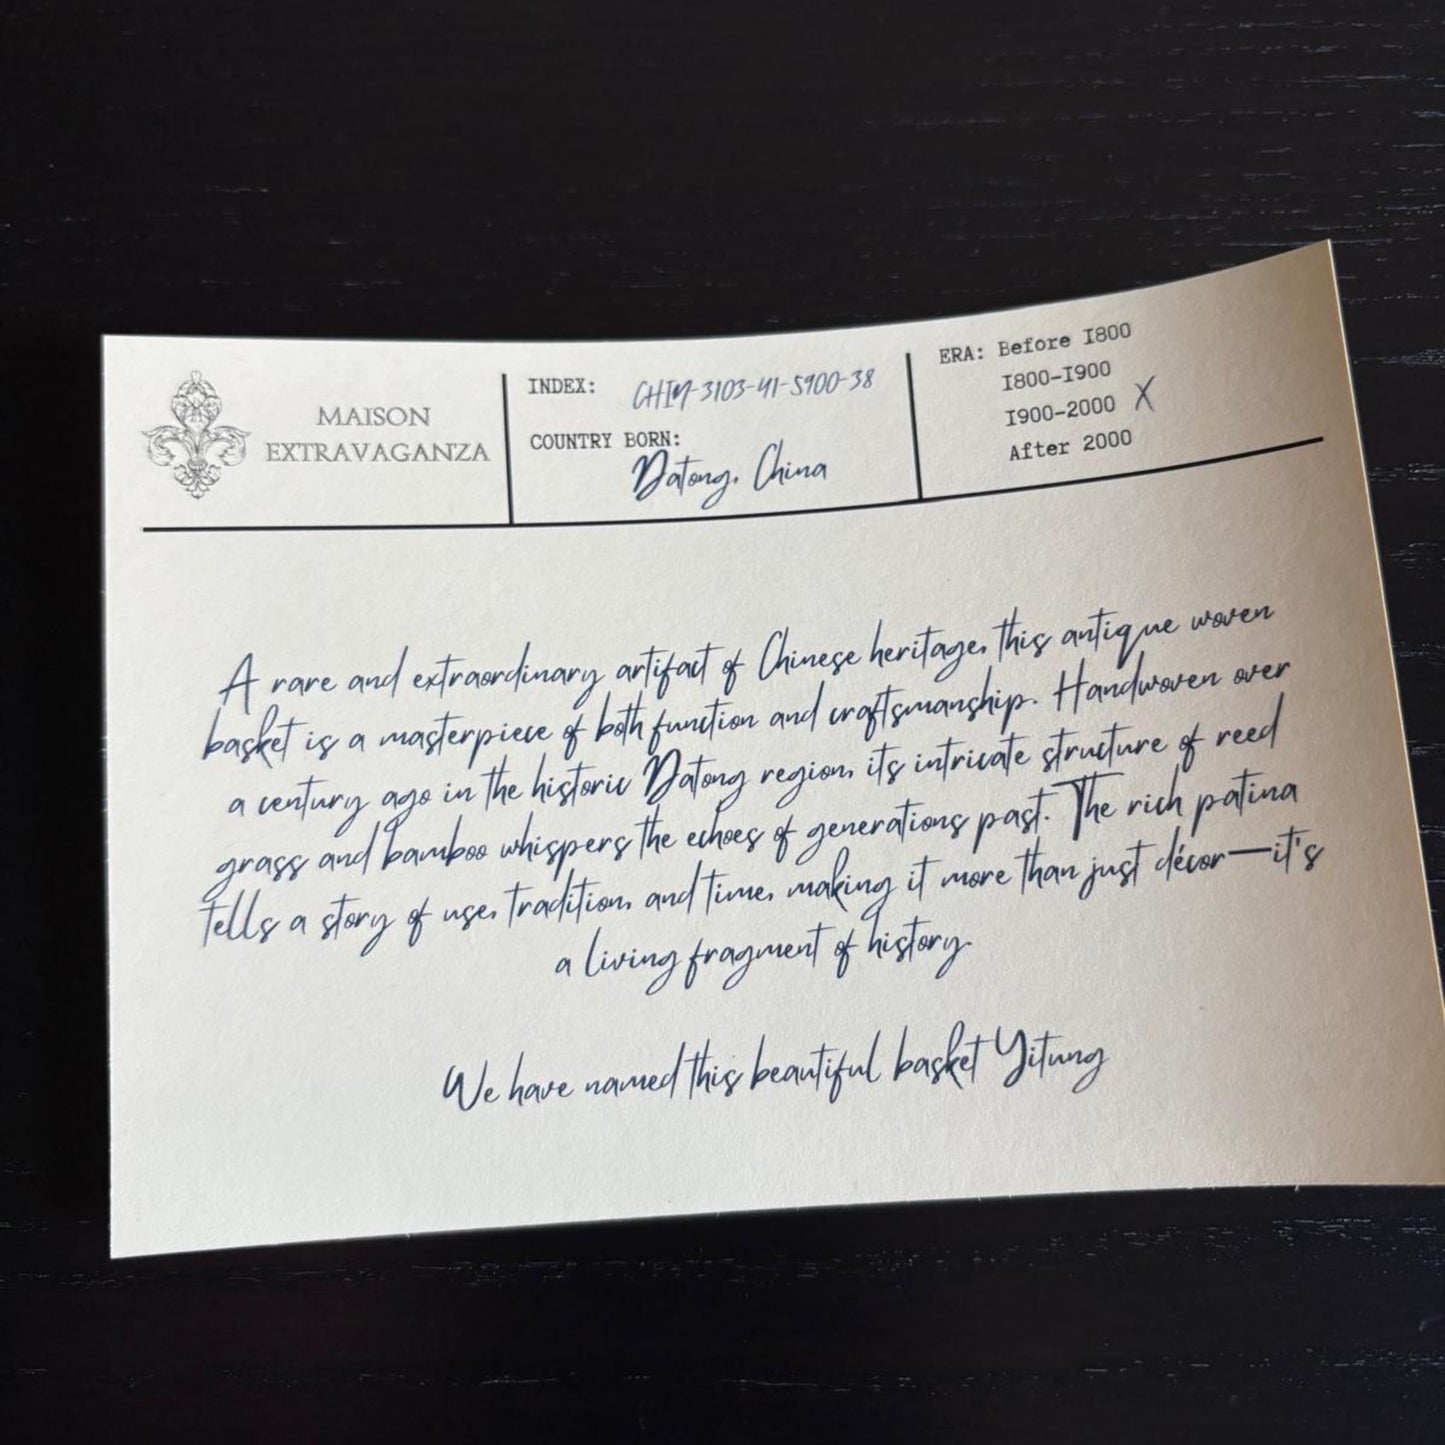 MAISON
EXTRAVAGANZA
INDEX: CHIM-3103-41-5900-38
COUNTRY BORN:
Datong, China
ERA: Before 1800
1800-1900
1900-2000 X
After 2000
A rare and extraordinary artifact of Chinese heritage, this antique woven
basket is a masterpiece of both function and craftsmanship. Handwoven over
a century ago in the historic Datong region, its intricate structure of reed
grass and bamboo whispers the echoes of generations past. The rich patina
tells a story of use, tradition, and time, making it more than just décor—it's
a living fragment of history.
We have named this beautiful basket Yitung